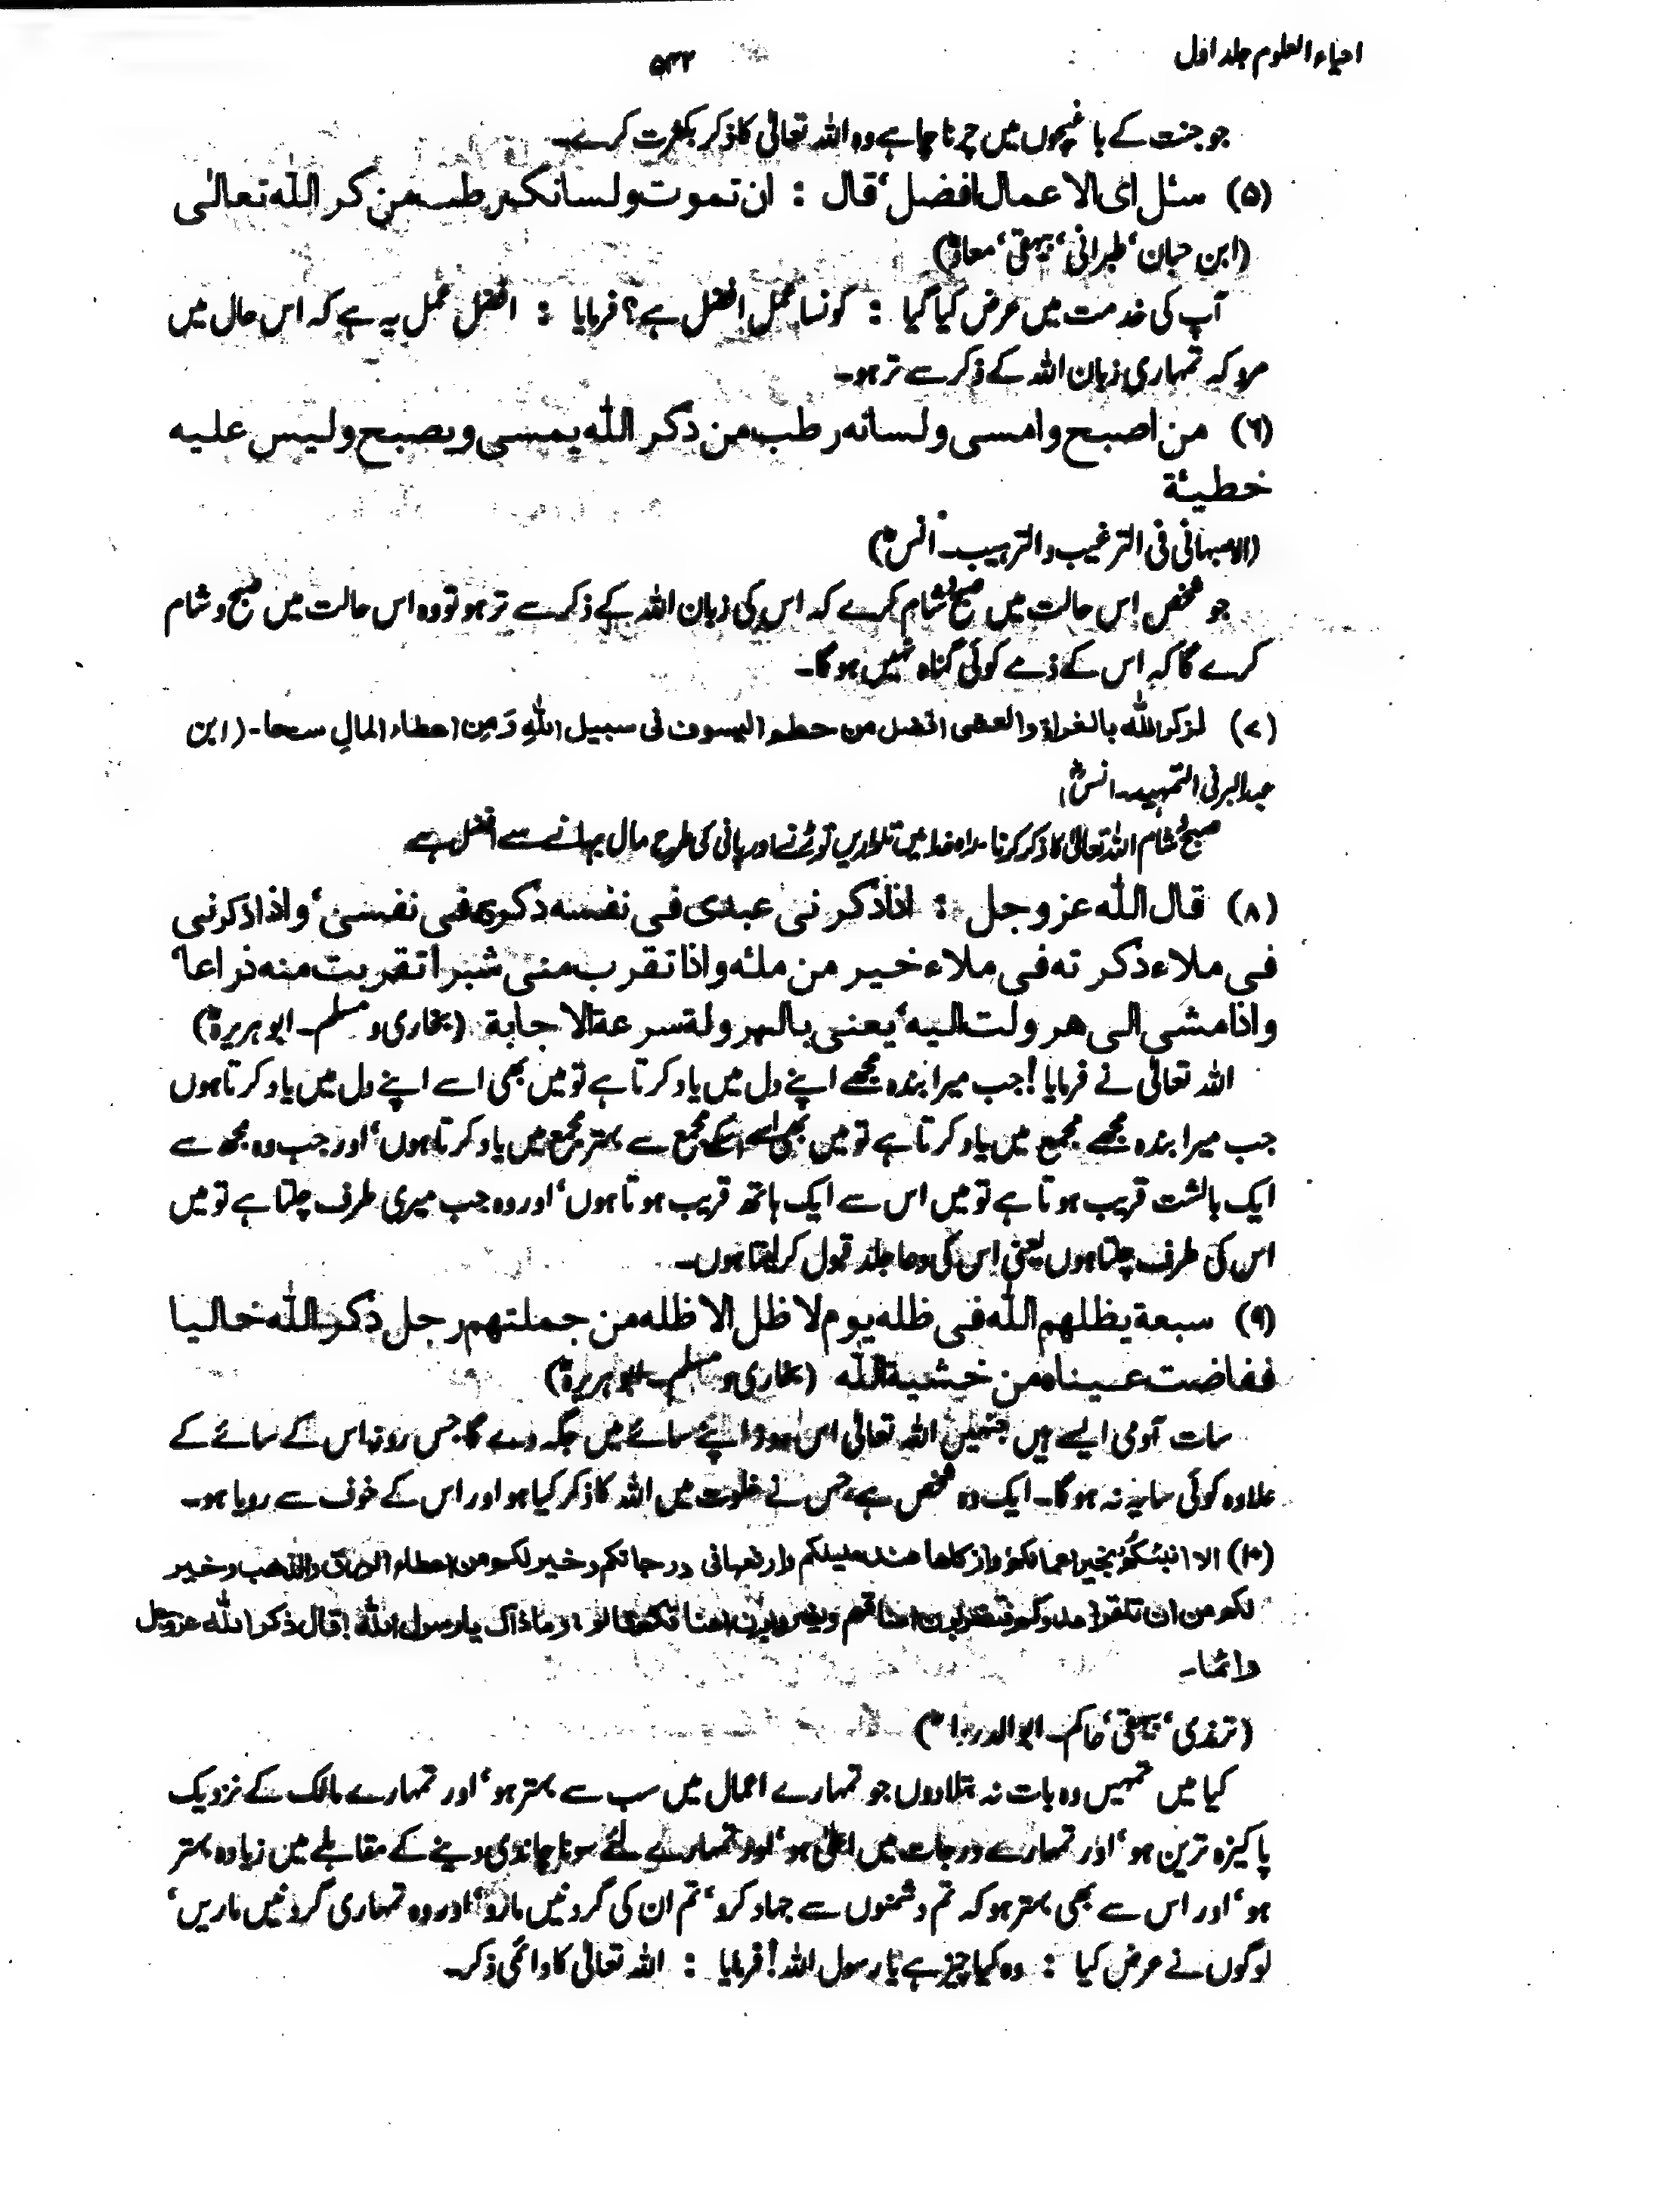 احیاء العلوم جلد اول
۵۳۲
جو جنت کے باغیچوں میں چرنا چاہے وہ اللہ تعالیٰ کا ذکر بکثرت کرے۔
(۵) سئل ای الاعمال افضل، قال : ان تموت ولسانک رطب من ذکر اللہ تعالٰی
(ابن حبان، طبرانی، بیہقی، معاذؓ)
آپ کی خدمت میں عرض کیا گیا : کونسا عمل افضل ہے؟ فرمایا : افضل عمل یہ ہے کہ اس حال میں
مرو کہ تمہاری زبان اللہ کے ذکر سے تر ہو۔
(٦) من اصبح وامسی ولسانه رطب من ذکر اللہ یمسی ویصبح ولیس علیه
خطیئة
(الاصبہانی فی الترغیب والترہیب۔ انسؓ)
جو شخص اس حالت میں صبح شام کرے کہ اس کی زبان اللہ کے ذکر سے تر ہو تو وہ اس حالت میں صبح و شام
کرے گا کہ اس کے ذمے کوئی گناہ نہیں ہوگا۔
(۷) لذکر اللہ بالغداۃ والعشی افضل من حطم السیوف فی سبیل اللہِ وَمِن اعطاء المالِ سحا۔ (ابن
عبدالبر فی التمہید۔ انسؓ)
صبح شام اللہ تعالیٰ کا ذکر کرنا راہ خدا میں تلواریں توڑنے اور پانی کی طرح مال بہانے سے افضل ہے
(۸) قال اللہ عز و جل : اذا ذکر نی عبدی فی نفسه ذکرته فی نفسی، واذا ذکرنی
فی ملاء ذکر ته فی ملاء خیر من ملئه واذا تقرب منی شبرا تقربت منه ذراعا،
واذا مشی الی هر ولت الیه، یعنی بالهر ولة سرعة الاجابة (بخاری و مسلم۔ ابو ہریرہؓ)
اللہ تعالیٰ نے فرمایا! جب میرا بندہ مجھے اپنے دل میں یاد کرتا ہے تو میں بھی اسے اپنے دل میں یاد کرتا ہوں
جب میرا بندہ مجھے مجمع میں یاد کرتا ہے تو میں بھی اسے اسکے مجمع سے بہتر مجمع میں یاد کرتا ہوں، اور جب وہ مجھ سے
ایک بالشت قریب ہوتا ہے تو میں اس سے ایک ہاتھ قریب ہوتا ہوں، اور وہ جب میری طرف چلتا ہے تو میں
اس کی طرف چلتا ہوں یعنی اس کی دعا جلد قبول کرلیتا ہوں۔
(۹) سبعة یظلهم اللہ فی ظله یوم لا ظل الا ظله من جملتهم رجل ذکر اللہ خالیا
ففاضت عیناہ من خشیة اللہ (بخاری و مسلم۔ ابو ہریرہؓ)
سات آدمی ایسے ہیں جنہیں اللہ تعالیٰ اس روز اپنے سائے میں جگہ دے گا جس روز اس کے سائے کے
علاوہ کوئی سایہ نہ ہوگا۔ ایک وہ شخص ہے جس نے خلوت میں اللہ کا ذکر کیا ہو اور اس کے خوف سے رویا ہو۔
(۱۰) الا انبئکم بخیر اعمالکم وازکاها عند ملیککم وارفعها فی درجاتکم وخیر لکم من اعطاء الورق والذهب وخیر
لکم من ان تلقوا عدوکم فتضربون اعناقهم ویضربون اعناقکم قالوا: وما ذاک یا رسول اللہ! قال ذکر اللہ عزوجل
دائما۔
(ترمذی، بیہقی، حاکم۔ ابو الدرداءؓ)
کیا میں تمہیں وہ بات نہ بتلادوں جو تمہارے اعمال میں سب سے بہتر ہو، اور تمہارے مالک کے نزدیک
پاکیزہ ترین ہو، اور تمہارے درجات میں اعلیٰ ہو، اور تمہارے لئے سونا چاندی دینے کے مقابلے میں زیادہ بہتر
ہو، اور اس سے بھی بہتر ہو کہ تم دشمنوں سے جہاد کرو، تم ان کی گردنیں مارو، اور وہ تمہاری گردنیں ماریں،
لوگوں نے عرض کیا : وہ کیا چیز ہے یا رسول اللہ! فرمایا : اللہ تعالیٰ کا دائمی ذکر۔